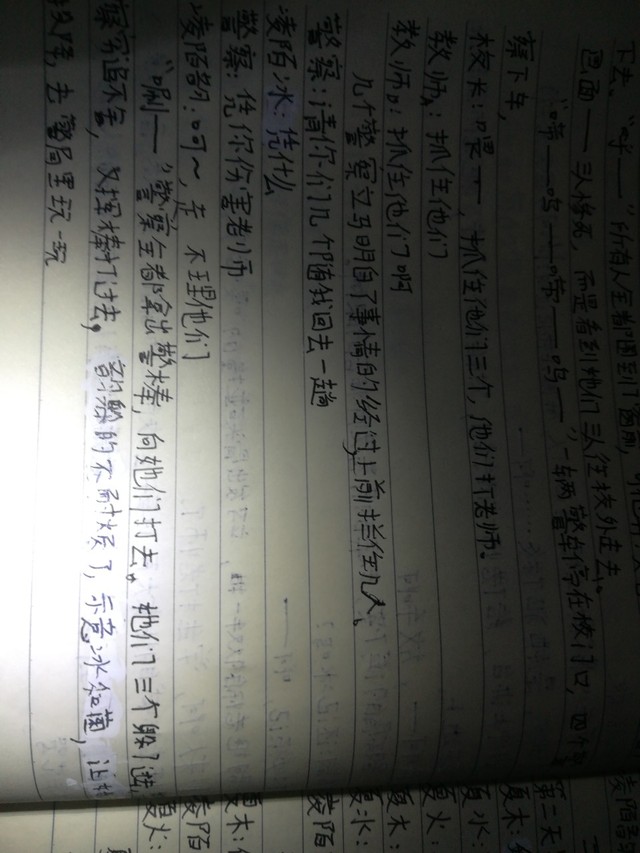 下去。"呼——"所有人全都围到门窗前,
画面——三人惨死,而是看到她们三人往校外走去。
"嘀——呜——嘀——呜——"一辆警车停在校门口,四个警
察下车,
校长:嘿——,抓住他们三个,他们打老师。
教师A:抓住他们
教师B:抓住他们啊
几个警察立马明白了事情的经过,上前拦住几人、
警察:请你们几个随我回去一趟
凌陌冰:凭什么
警察:凭你伤害老师
凌陌韵:呵~,走 不理他们
"唰——"警察全都拿出警棒,向她们打去。她们三个躲了
察穷追不舍,又挥棒打过去。 韵 的不耐烦了,示意冰和茵,让
投降,去警局里玩一玩
凌陌
第二天
夏木:
夏水:
夏火:
夏木:
夏水:
凌陌
夏木:
凌陌
夏火: